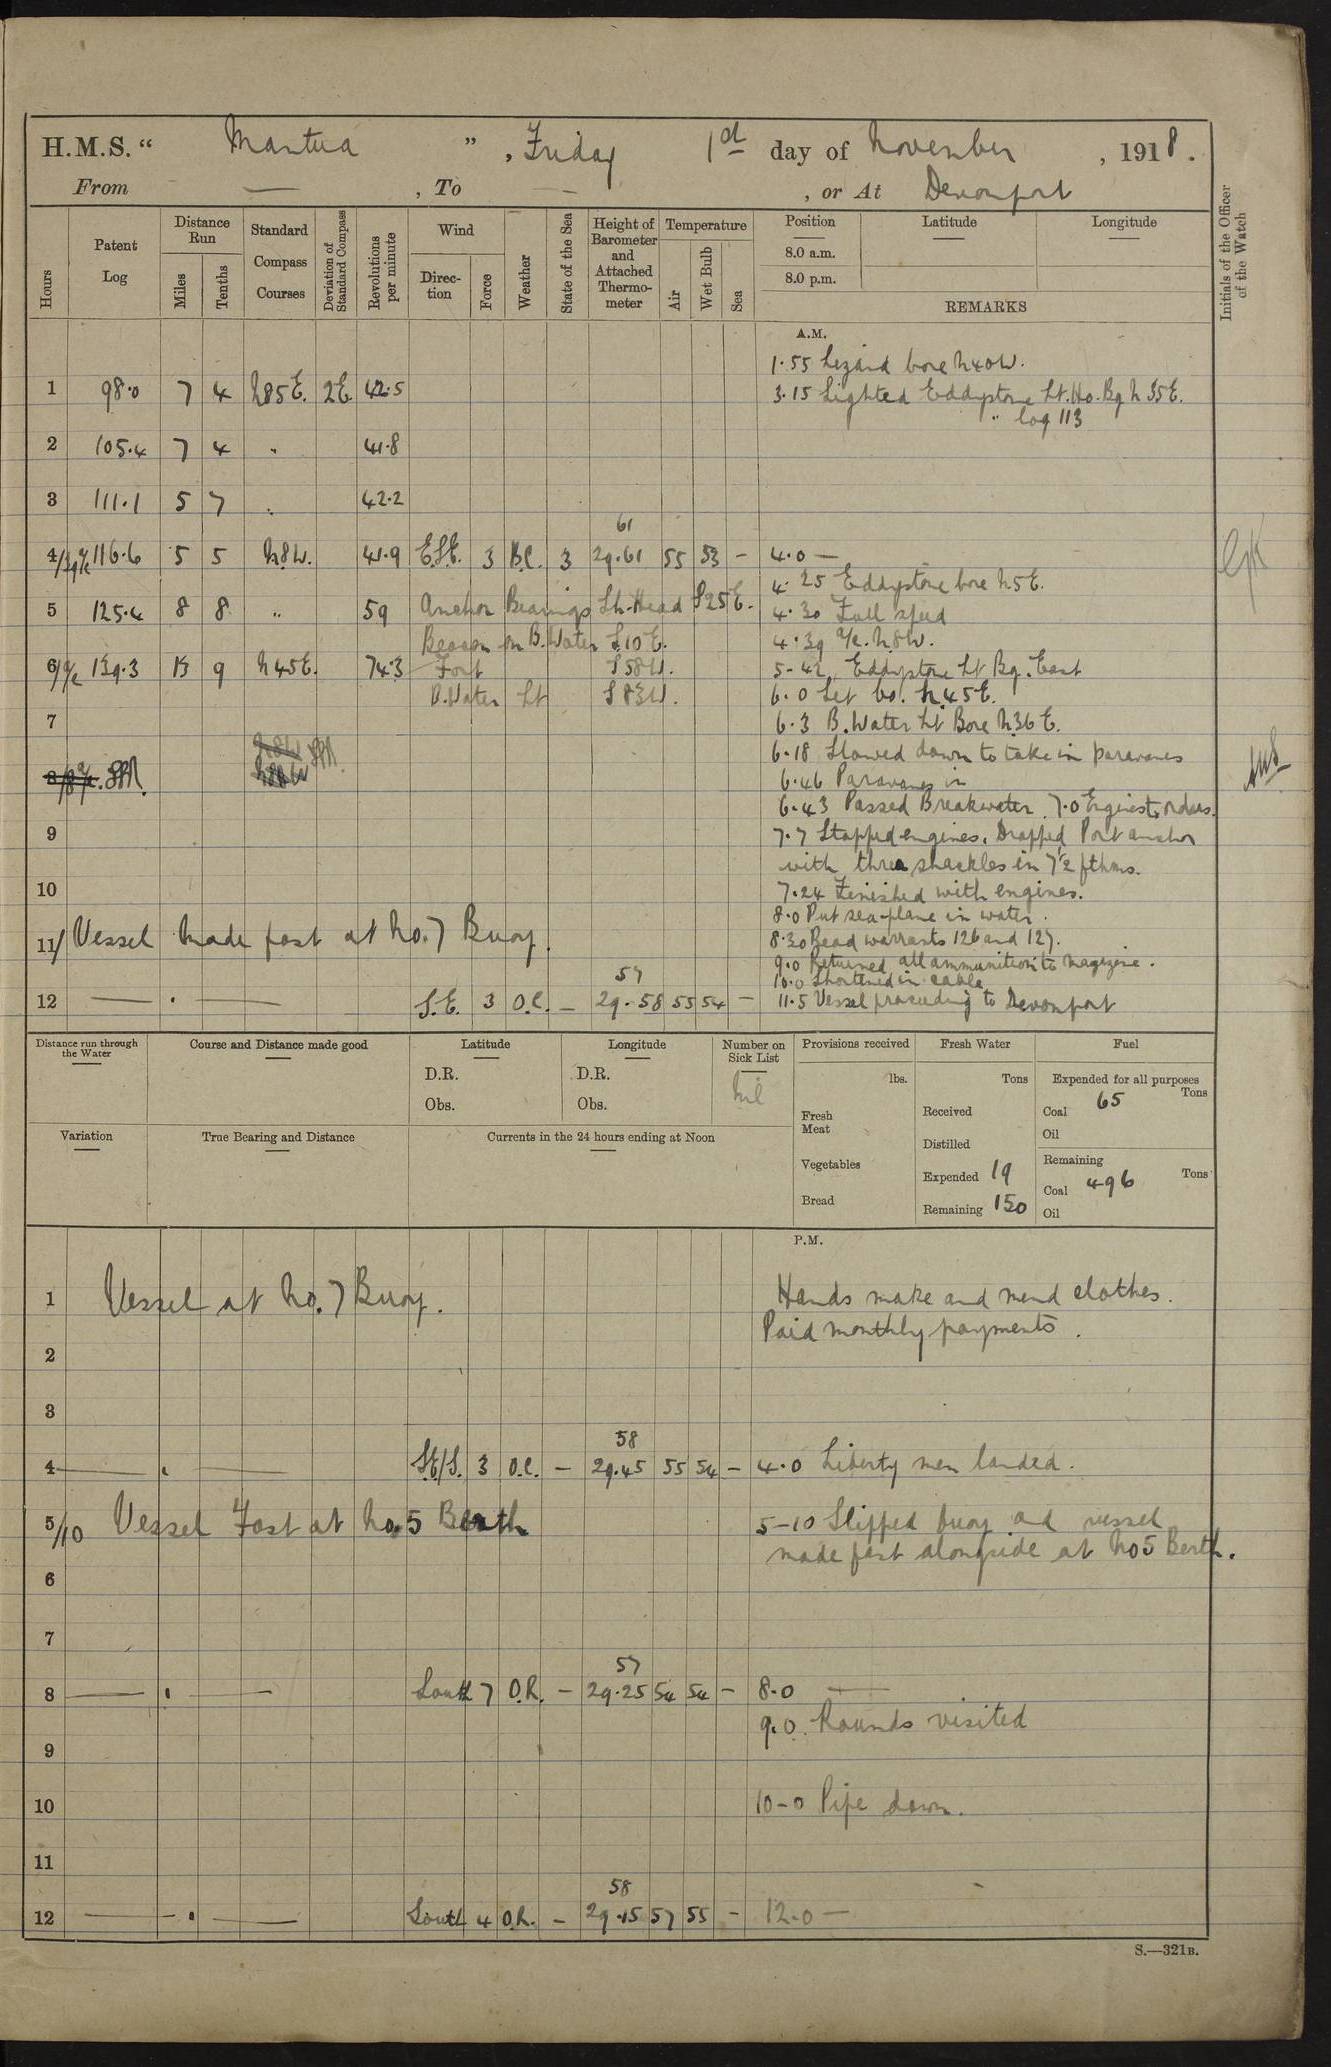 H.M.S. “ Mantua ” , Friday 1st day of November , 1918.
From — , To — , or At Devonport
Hours
Patent Log
Distance Run
Miles
Tenths
Standard Compass Courses
Deviation of Standard Compass
Revolutions per minute
Wind
Direc-tion
Force
Weather
State of the Sea
Height of Barometer and Attached Thermo-meter
Temperature
Air
Wet Bulb
Sea
Position
8.0 a.m.
8.0 p.m.
Latitude
Longitude
REMARKS
Initials of the Officer of the Watch
A.M.
1.55 Lizard bore N40W.
1 98.0 7 4 N85E. 2E 42.5 3.15 Sighted Eddystone Lt. Ho. Bg N35E.
" log 113
2 105.4 7 4 " 41.8
3 111.1 5 7 " 42.2
61
4/39 a/c 116.6 5 5 N8W. 41.9 E.S.E. 3 B.C. 3 29.61 55 53 – 4.0 —
4.25 Eddystone bore N5E.
5 125.4 8 8 " 59 Anchor Bearings Sh. Head S25E. 4.30 Full speed
Beacon on B. Water S.10E. 4.39 a/c. N.8W.
6/a/c 139.3 13 9 N45E. 74.3 Fort S58W. 5-42 Eddystone Lt Bg. East
B.Water Lt S83W. 6.0 Set Co. N.45E.
7 6.3 B. Water Lt Bore N36E.
6.18 Slowed down to take in paravanes
8 N8W 6.46 Paravanes in
6.43 Passed Breakwater. 7.0 Engines to orders.
9 7.7 Stopped engines. Dropped Port anchor
with three shackles in 7½ fthms.
10 7.24 Finished with engines.
8.0 Put sea-plane in water.
11/ Vessel made fast at No. 7 Buoy. 8.30 Read warrants 126 and 127.
9.0 Returned all ammunition to magazine.
57 10.0 Shortened in cable
12 — . — S.E. 3 O.C. – 29.58 55 54 – 11.5 Vessel proceeding to Devonport
Distance run through the Water
Course and Distance made good
Latitude
D.R.
Obs.
Longitude
D.R.
Obs.
Number on Sick List
Nil
Provisions received
lbs.
Fresh Meat
Vegetables
Bread
Fresh Water
Tons
Received
Distilled
Expended 19
Remaining 150
Fuel
Expended for all purposes
Tons
Coal 65
Oil
Remaining
Tons
Coal 496
Oil
Variation
True Bearing and Distance
Currents in the 24 hours ending at Noon
P.M.
1 Vessel at No. 7 Buoy. Hands make and mend clothes.
Paid monthly payments.
2
3
58
4 — . — S.E/S. 3 O.C. – 29.45 55 54 – 4.0 Liberty men landed.
5/10 Vessel Fast at No. 5 Berth 5-10 Slipped buoy and vessel
made fast alongside at No 5 Berth.
6
7
57
8 — . — South 7 O.R. – 29.25 54 54 – 8.0 —
9.0. Rounds visited
9
10 10-0 Pipe down.
11
58
12 — . — South 4 O.R. – 29.15 57 55 – 12.0 —
S.—321B.